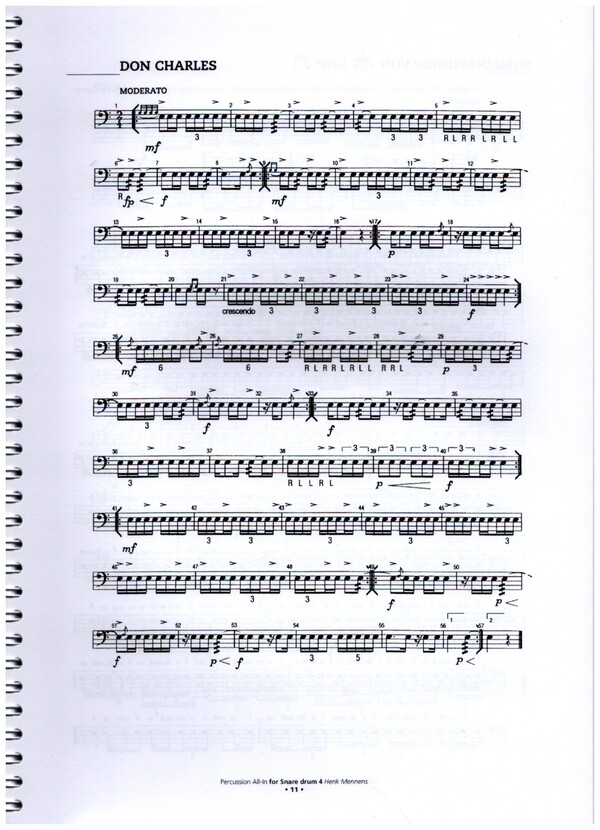 DON CHARLES
MODERATO
1 2 3 4 5
mf 3 3 3 R L R R L R L L
6 7 8 9 10 11 12
R fp < f mf 3
13 14 15 16 17 18
3 3 p
19 20 21 22 23 24
crescendo 3 3 3 3 f
25 26 27 28 29
mf 6 6 R L R R L R L L R R L p 3
30 31 32 33 34 35
3 f f
36 37 38 39 3 3 40 3
3 R L L R L p f
41 42 43 44 45
mf 3 3 3 3
46 47 48 49 50
3 3 f p <
51 52 53 54 55 56 1 57 2
f p < f 3 5 p <
Percussion All-In for Snare drum 4 Henk Mennens
• 11 •